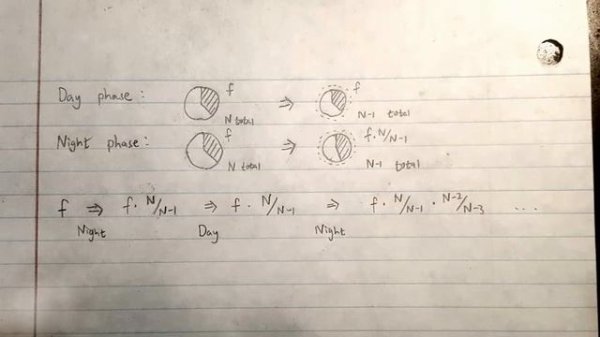 Day phase : f N total ⇒ f N-1 total
Night phase : f N total ⇒ f · N/N-1 N-1 total
f ⇒ f · N/N-1 ⇒ f · N/N-1 ⇒ f · N/N-1 · N-2/N-3 ....
Night Day Night